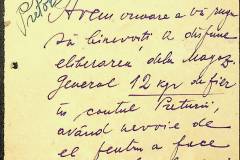 Pretor
Avem onoare a vă ruga
să binevoiți a dispune
eliberarea dela Magaz.
General 12 kgr de fier
în contul Preturii,
având nevoie de
el pentru a face